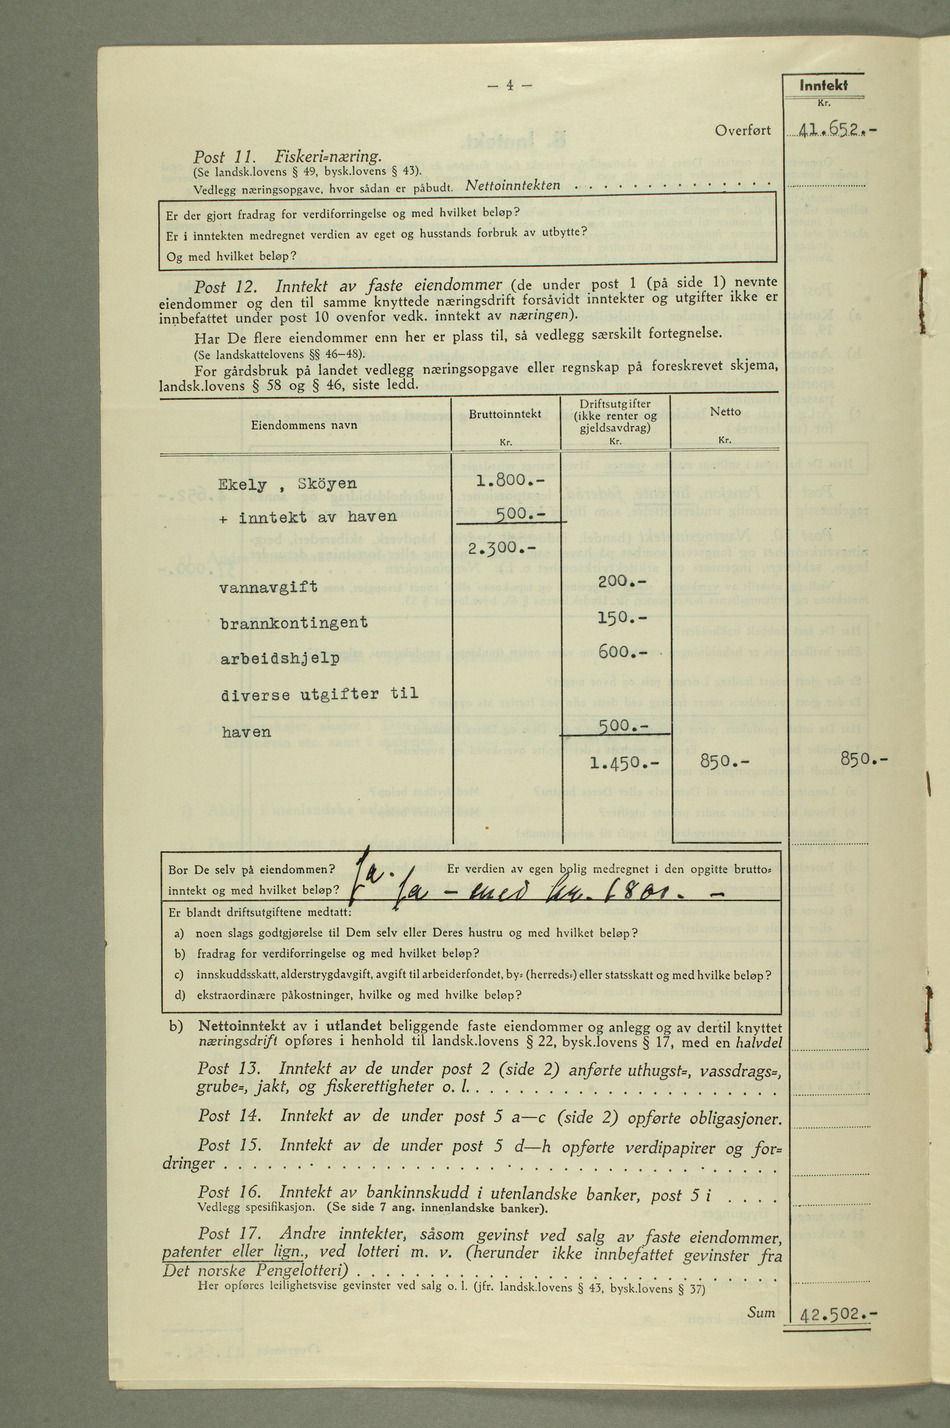 — 4 —
Inntekt
Kr.
Overført 41.652.-
Post 11. Fiskeri=næring.
(Se landsk.lovens § 49, bysk.lovens § 43).
Vedlegg næringsopgave, hvor sådan er påbudt. Nettoinntekten . . . . . . . . . . . . . .
Er der gjort fradrag for verdiforringelse og med hvilket beløp?
Er i inntekten medregnet verdien av eget og husstands forbruk av utbytte?
Og med hvilket beløp?
Post 12. Inntekt av faste eiendommer (de under post 1 (på side 1) nevnte
eiendommer og den til samme knyttede næringsdrift forsåvidt inntekter og utgifter ikke er
innbefattet under post 10 ovenfor vedk. inntekt av næringen).
Har De flere eiendommer enn her er plass til, så vedlegg særskilt fortegnelse.
(Se landskattelovens §§ 46—48).
For gårdsbruk på landet vedlegg næringsopgave eller regnskap på foreskrevet skjema,
landsk.lovens § 58 og § 46, siste ledd.
Eiendommens navn
Bruttoinntekt
Kr.
Driftsutgifter
(ikke renter og
gjeldsavdrag)
Kr.
Netto
Kr.
Ekely , Sköyen 1.800.-
+ inntekt av haven 500.-
2.300.-
vannavgift 200.-
brannkontingent 150.-
arbeidshjelp 600.-
diverse utgifter til
haven 500.-
1.450.- 850.- 850.-
Bor De selv på eiendommen? Ja. Er verdien av egen bolig medregnet i den opgitte brutto=
inntekt og med hvilket beløp? Ja – med kr. 1800. –
Er blandt driftsutgiftene medtatt:
a) noen slags godtgjørelse til Dem selv eller Deres hustru og med hvilket beløp?
b) fradrag for verdiforringelse og med hvilket beløp?
c) innskuddsskatt, alderstrygdavgift, avgift til arbeiderfondet, by= (herreds=) eller statsskatt og med hvilke beløp?
d) ekstraordinære påkostninger, hvilke og med hvilke beløp?
b) Nettoinntekt av i utlandet beliggende faste eiendommer og anlegg og av dertil knyttet
næringsdrift opføres i henhold til landsk.lovens § 22, bysk.lovens § 17, med en halvdel
Post 13. Inntekt av de under post 2 (side 2) anførte uthugst=, vassdrags=,
grube=, jakt, og fiskerettigheter o. l. . . . . . . . . . . . . . . . . . . . . . .
Post 14. Inntekt av de under post 5 a—c (side 2) opførte obligasjoner.
Post 15. Inntekt av de under post 5 d—h opførte verdipapirer og for=
dringer . . . . . . . . . . . . . . . . . . . . . . . . . . . . . . . . .
Post 16. Inntekt av bankinnskudd i utenlandske banker, post 5 i . . . .
Vedlegg spesifikasjon. (Se side 7 ang. innenlandske banker).
Post 17. Andre inntekter, såsom gevinst ved salg av faste eiendommer,
patenter eller lign., ved lotteri m. v. (herunder ikke innbefattet gevinster fra
Det norske Pengelotteri) . . . . . . . . . . . . . . . . . . . . . . . .
Her opføres leilighetsvise gevinster ved salg o. l. (jfr. landsk.lovens § 43, bysk.lovens § 37)
Sum 42.502.-